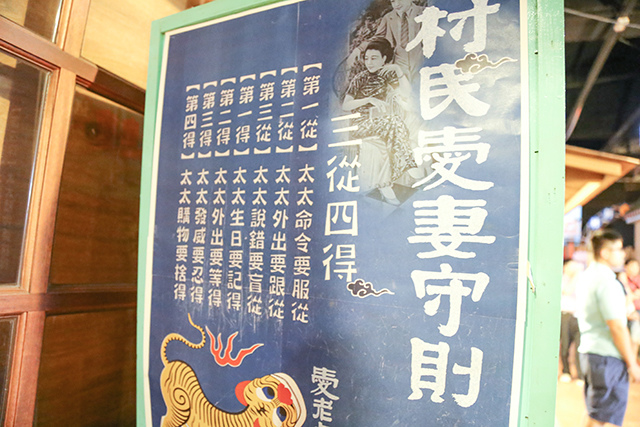 村民愛妻守則
三從四得
【第一從】太太命令要服從
【第二從】太太外出要跟從
【第三從】太太說錯要盲從
【第一得】太太生日要記得
【第二得】太太外出要等得
【第三得】太太發威要忍得
【第四得】太太購物要捨得
愛老